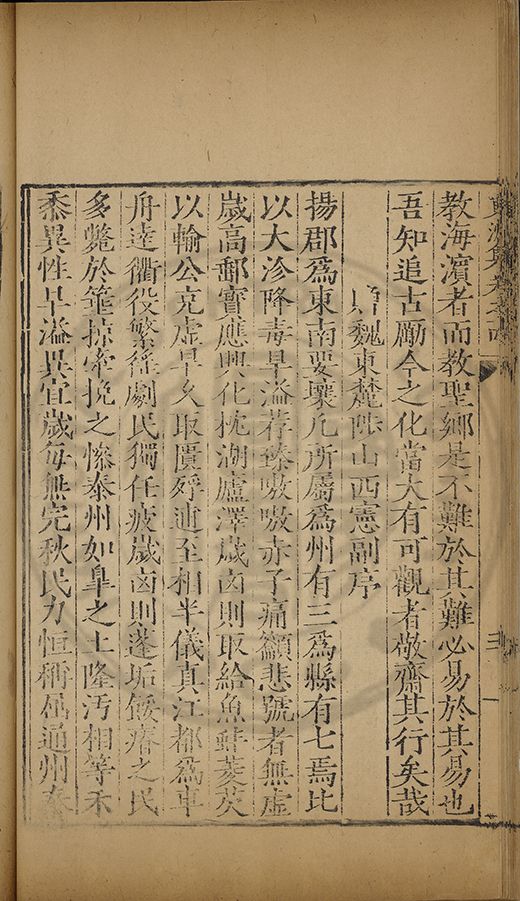 教海濱者而教聖鄉是不難於其難必易於其易也
吾知追古勵今之化當大有可觀者敬齋其行矣哉
贈魏東麓陟山西憲副序
揚郡爲東南要壤凡所屬爲州有三爲縣有七焉比
以大沴降毒旱溢荐臻嗷嗷赤子痛籲悲號者無虛
歲高郵寶應興化枕湖廬澤歲凶則取給魚鮭菱芡
以輸公克虛旱乆取匱殍逋至相半儀真江都爲車
舟逵衢役繁徭劇民獨任疲歲凶則蓬垢餒瘠之民
多斃於箠掠牽挽之慘泰州如臯之土隆汚相等禾
黍異性旱溢異宜歲每無完秋民力恒稱屈通州泰